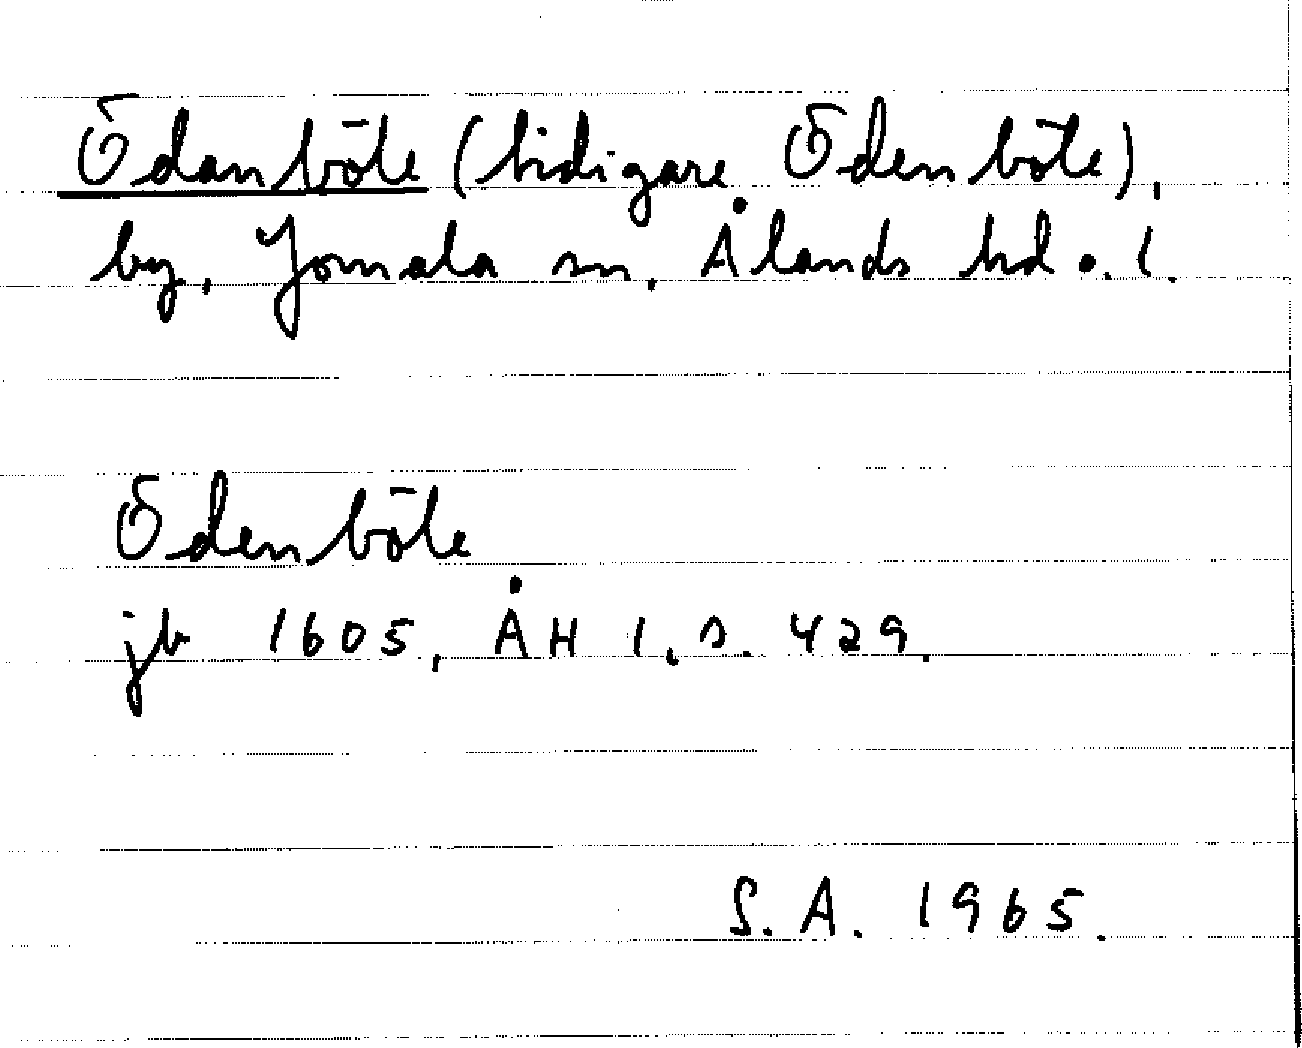 Ödanböte (tidigare Ödenböte),
by, Jomala sn, Ålands hd o. l.
Ödenböte
jb 1605, ÅH 1, s. 429.
S.A. 1965.